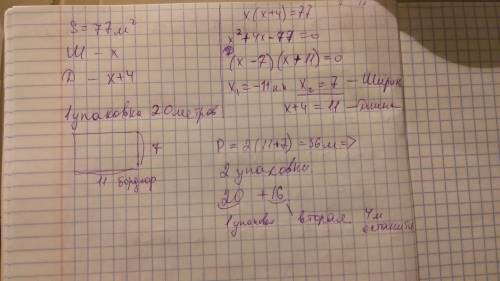 S = 77 м²
Ш - х
Д - х+4
1 упаковка 20 метров
7
11 бордюр
x(x+4)=77
x²+4x-77=0
(x-7)(x+11)=0
x₁=-11 н.к x₂=7 - Ширин
x+4=11 - Длина
P = 2(11+7)=36 м =>
2 упаковки
20 + 16
1 упаковка вторая 4м
останется